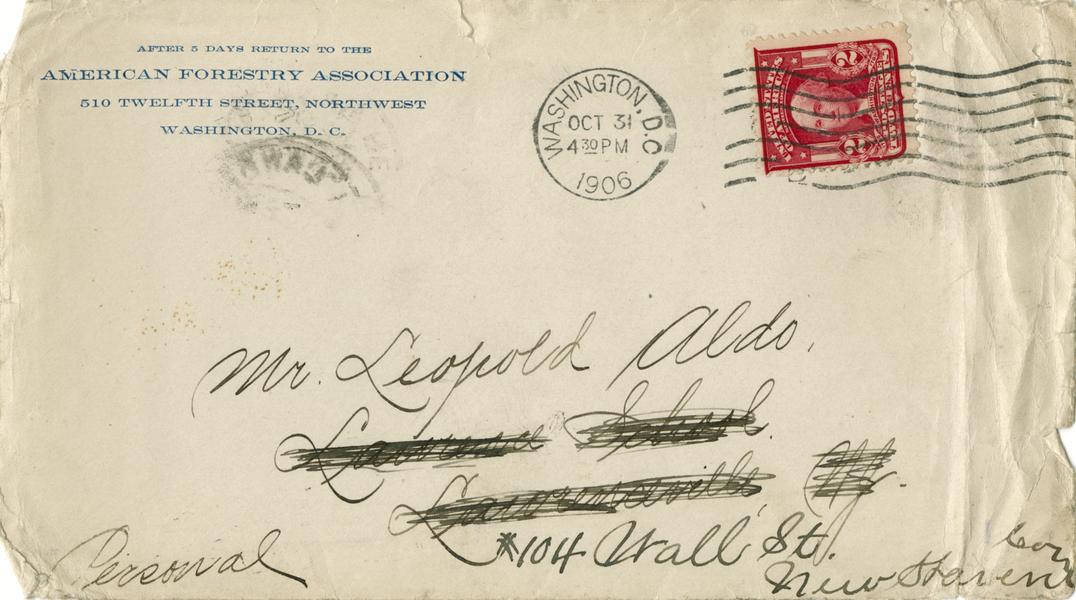 AFTER 5 DAYS RETURN TO THE
AMERICAN FORESTRY ASSOCIATION
510 TWELFTH STREET, NORTHWEST
WASHINGTON, D. C.
WASHINGTON, D.C.
OCT 31
4 30 PM
1906
2 2
Mr. Leopold Aldo.
Lawrence School.
Lawrenceville
104 Wall St.
New Haven
Personal